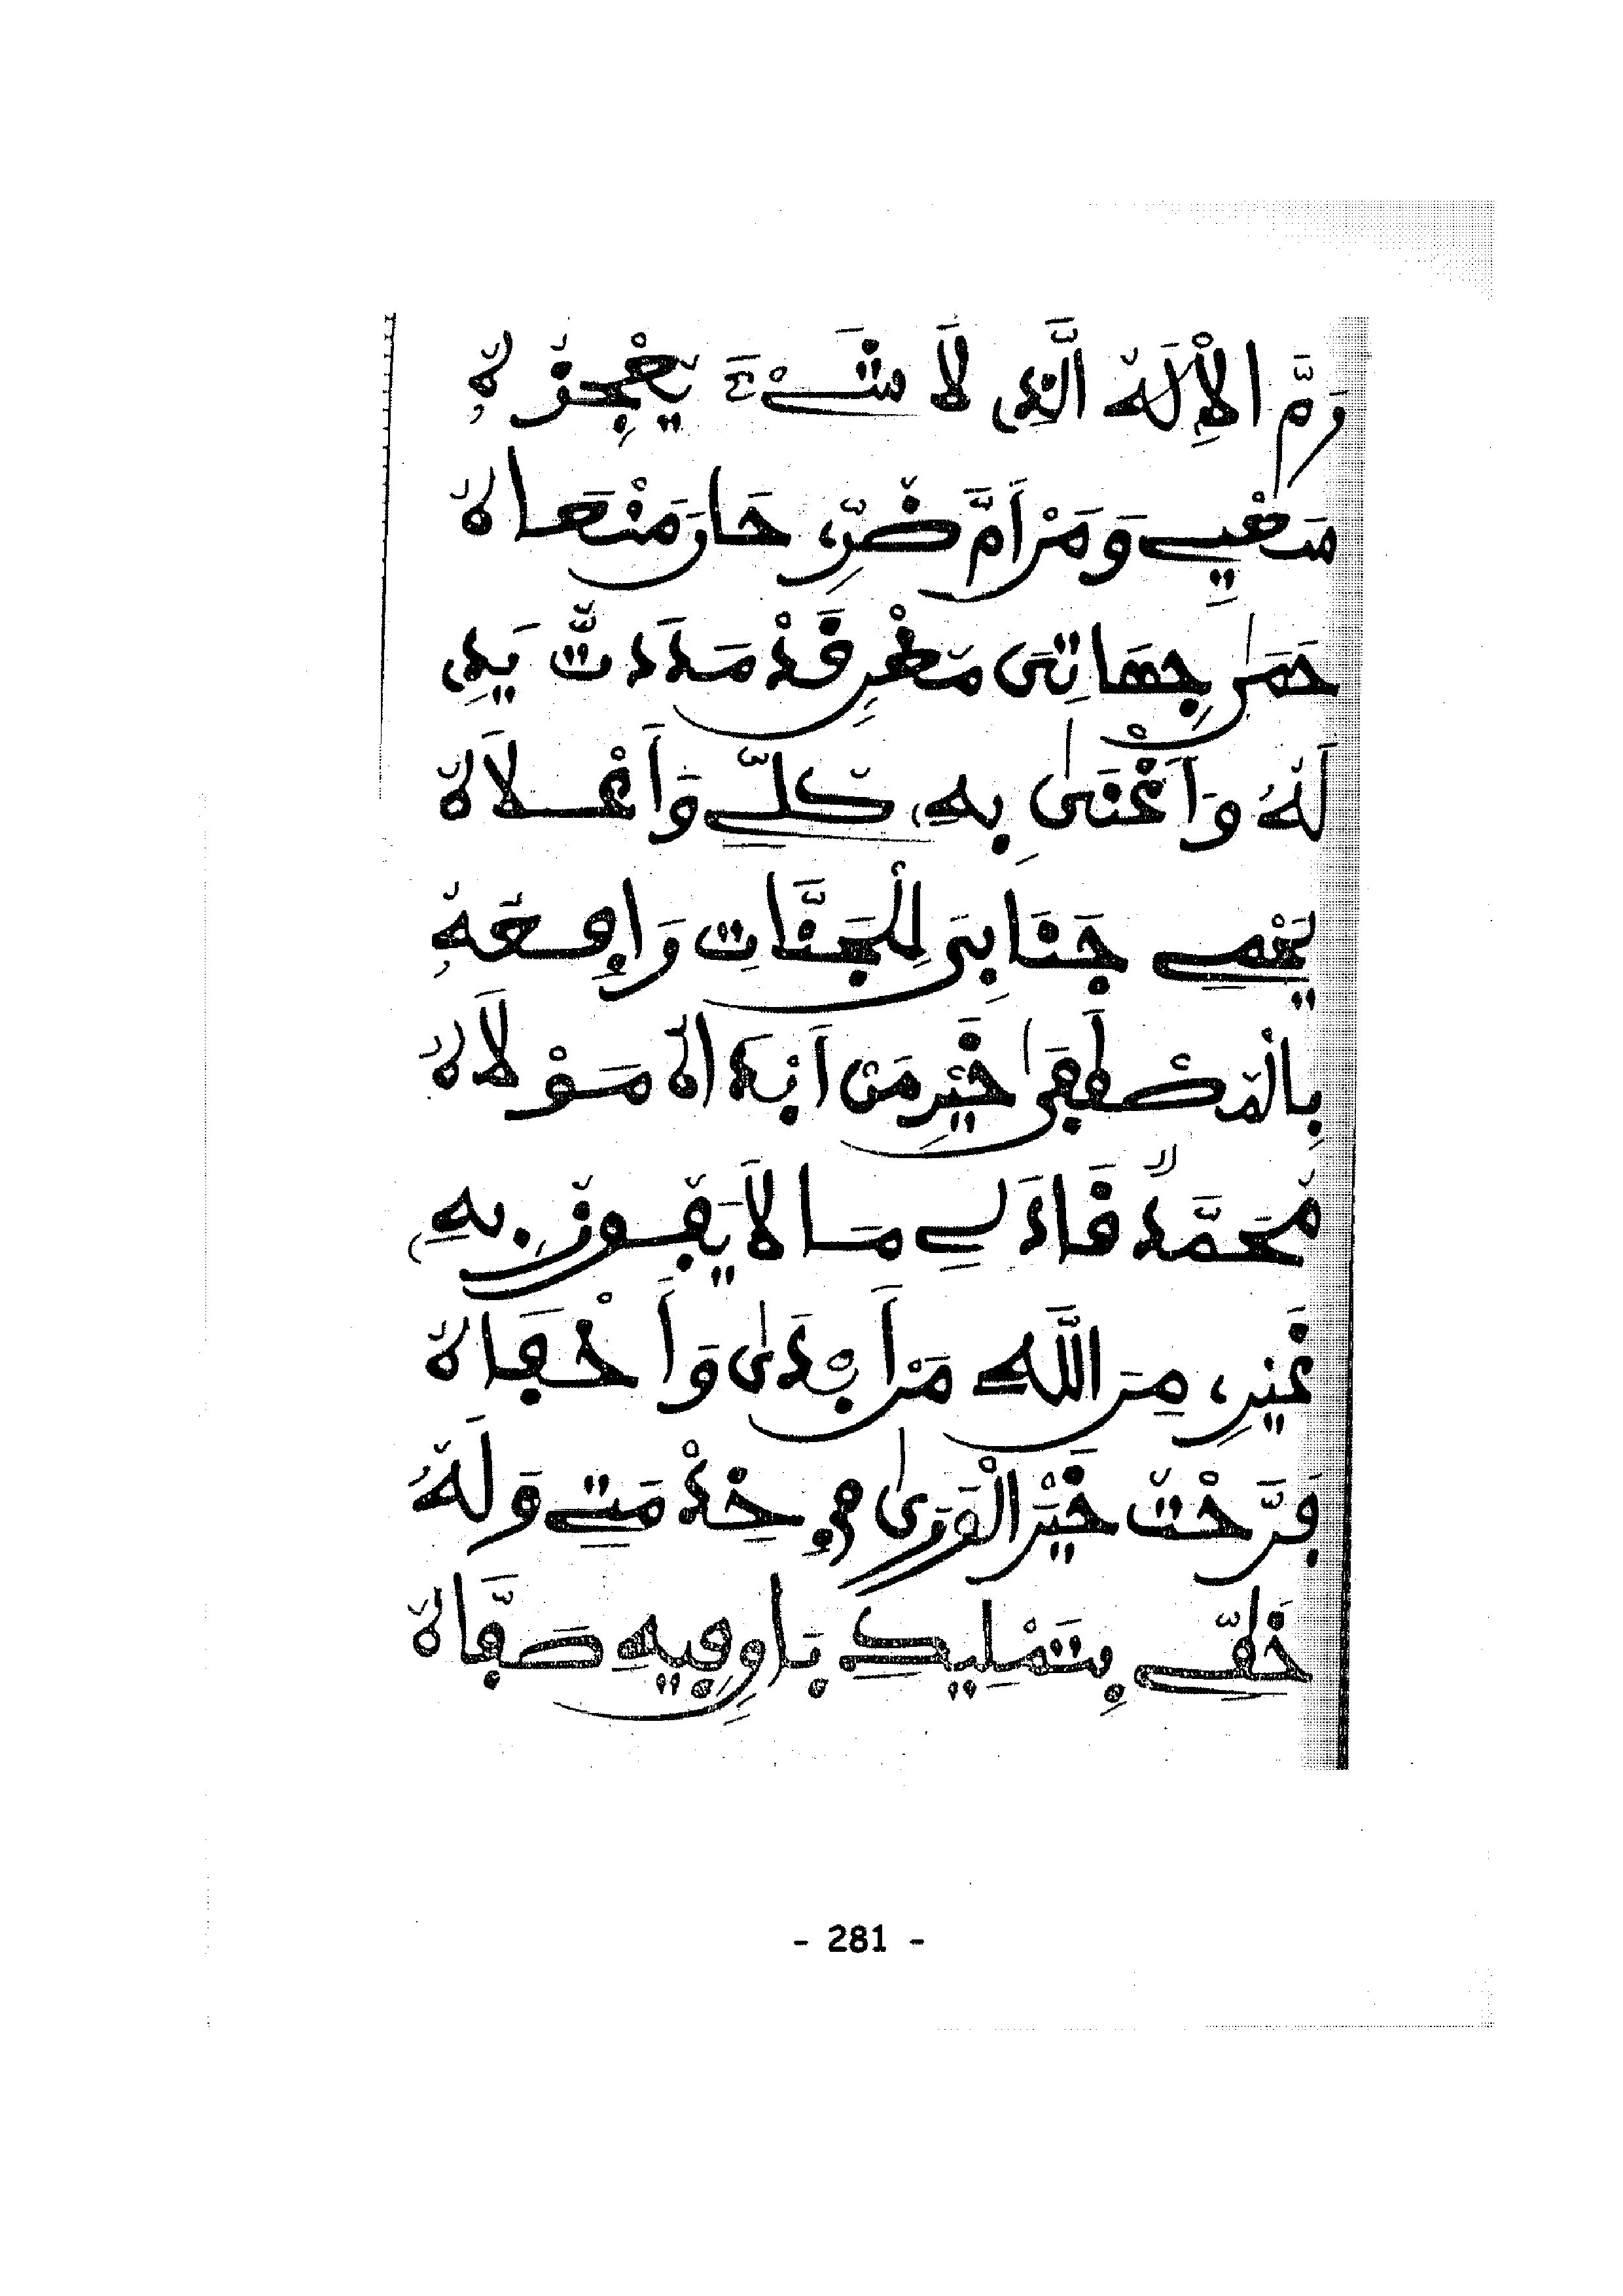 رَمَّ الْإِلَهُ الَّذِى لَا شَىْءَ يُعْجِزُهُ
مَعْيِى وَمَنْ أَمَّ ضُرِّى حَارَ مَنْعَاهُ
حَمَى جِهَاتِىَ مَعْ قَدْ مَدَدتُّ يَدِى
لَهُ وَأَغْنَى بِهِ كُلِّى وَأَعْلَاهُ
جَنَابِىَ لِلْجَنَّاتِ وَافِعَهُ
بِالْمُصْطَفَى خَيْرِ مَنْ أَبْدَاهُ مَوْلَاهُ
مُحَمَّدٌ قَادَ لِى مَا لَا يَفُوزُ بِهِ
غَيْرِى مِنَ اللَّهِ مَنْ أَبْدَى وَأَخْفَاهُ
فَرَّحْتُ خَيْرَ الْوَرَى فِى خِدْمَتِى وَلَهُ
خَطِّى بِتَمْلِيكِ بَاوٍ فِيهِ صَفَّاهُ
- 281 -